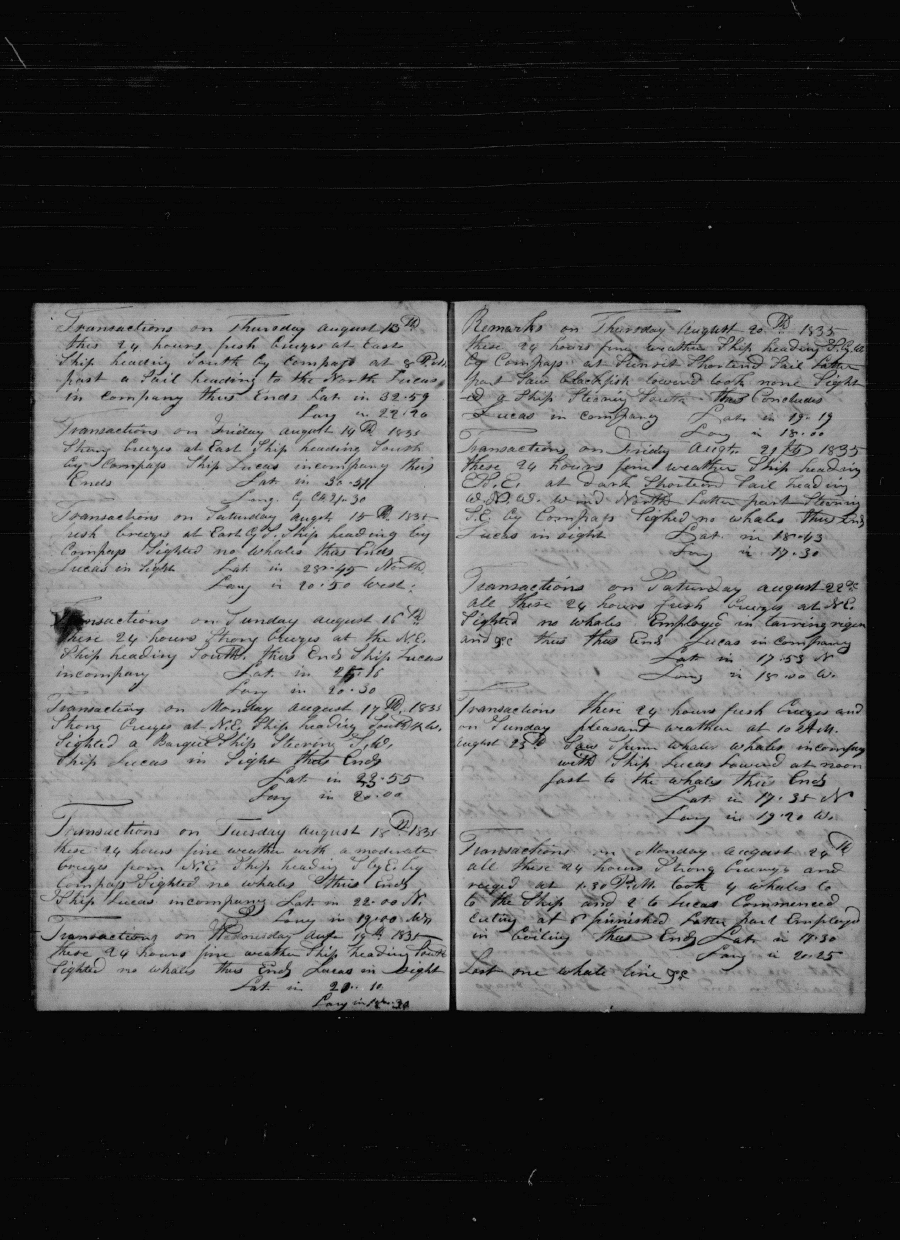 Transactions on Thursday august 13th
this 24 hours fresh breezes at East
Ship heading South by Compass at 8 P.M.
past a Sail heading to the North Lucas
in company thus Ends Lat in 32-59
Long in 22-20
Transactions on Friday august 14th 1835
Strong breezes at East Ship heading South
by Compass Ship Lucas incompany this
Ends Lat in 30-51
Long by Ch 21-30
Transactions on Saturday augst 15th 1835
resh breezes at East by S. Ship heading by
Compass Sighted no whales thus Ends
Lucas in Sight Lat in 28-45 North
Long in 20-50 West
Transactions on Sunday august 16th
these 24 hours Strong breezes at the N.E.
Ship heading South thus Ends Ship Lucas
incompany Lat in 25-15
Long in 20-30
Transactions on Monday august 17th 1835
Strong breezes at N.E. Ship heading South
Sighted a Barque Ship Steering S.W.
Ship Lucas in Sight thus Ends
Lat in 23-55
Long in 20-00
Transactions on Tuesday august 18th 1835
these 24 hours fine weather with a moderate
breezes from N.E. Ship heading S by E. by
Compass Sighted no whales thus Ends
Ship Lucas incompany Lat in 22-00 N.
Long in 19-00
Transactions on Wednesday 19th 1835
these 24 hours fine weather Ship heading South
Sighted no whales thus Ends Lucas in Sight
Lat in 20-10
Long in 18-30
Remarks on Thursday August 20th 1835
these 24 hours fine weather Ship heading
by Compass at Sunset Shortend Sail Latter
part Saw blackfish lowerd took none Sight
ed a Ship Steering South thus Concludes
Lucas in company Lat in 19-19
Long in 18-00
Transactions on Friday Augt 21st 1835
these 24 hours fine weather Ship heading
at dark Shortend Sail heading
W.N.W. wind North Latter part Steering
S.E. by Compass Sighed no whales thus Ends
Lucas in sight Lat in 18-43
Long in 17-30
Transactions on Saturday august 22d
all these 24 hours fresh breezes at N.E.
Sighted no whales Employed in
and &c thus thus Ends Lucas in company
Lat in 17-53 N
Long in 18-00 W.
Transactions these 24 hours fresh breezes and
on Sunday pleasant weather at 10 A.M.
August 23th Saw Sperm whales whales incompany
with Ship Lucas Lowerd at noon
fast to the whales thus Ends
Lat in 17-35 N
Long in 19-20 W.
Transactions on Monday august 24th
all these 24 hours Strong breezes and
at 1.30 P.M. took 4 whales to
to the Ship and 2 to Lucas Commenced
Cuting at 5 finished Latter part Employed
in Boiling thus Ends Lat in 17-30
Long in 20-25
Lost one whale line &c